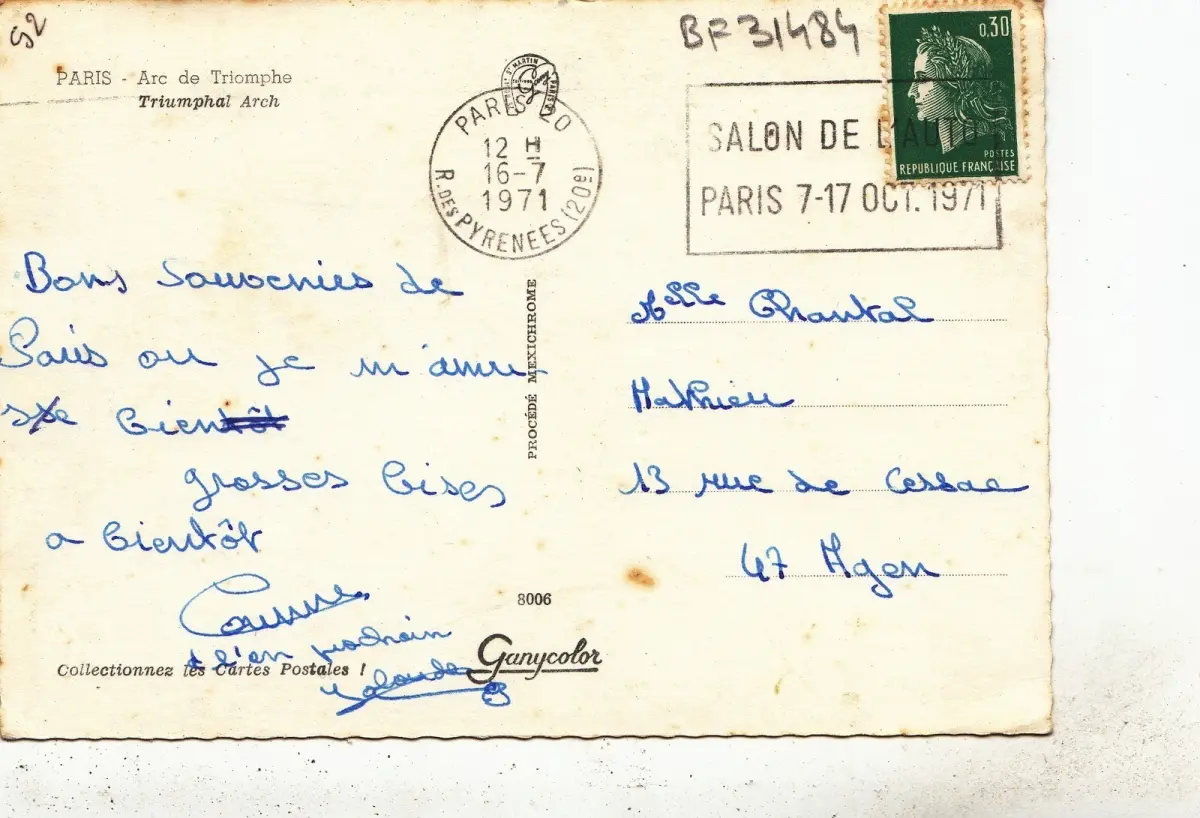 92
BF 31484
PARIS - Arc de Triomphe
Triumphal Arch
PARIS 20
12 H
16-7
1971
R. DES PYRENEES (20e)
0,30
POSTES
REPUBLIQUE FRANÇAISE
SALON DE L'AUTO
PARIS 7-17 OCT. 1971
Bons souvenirs de
Paris ou je m'amu-
se bien
grosses bises
a bientôt
Corinne
à l'an prochain
Yolande
PROCÉDÉ MEXICHROME
Melle Chantal
Mathieu
13 rue de Cessac
47 Agen
8006
Ganycolor
Collectionnez les Cartes Postales !